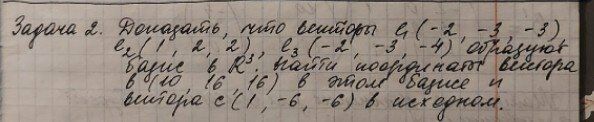 Задача 2. Доказать, что векторы e₁(-2, -3, -3)
e₂(1, 2, 2), e₃(-2, -3, -4) образуют
базис в R³. Найти координаты вектора
в (10, 16, 16) в этом базисе и
вектора с (1, -6, -6) в исходном.